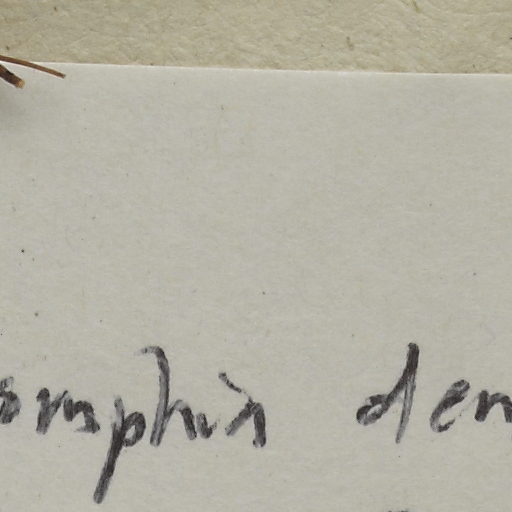 omphis den